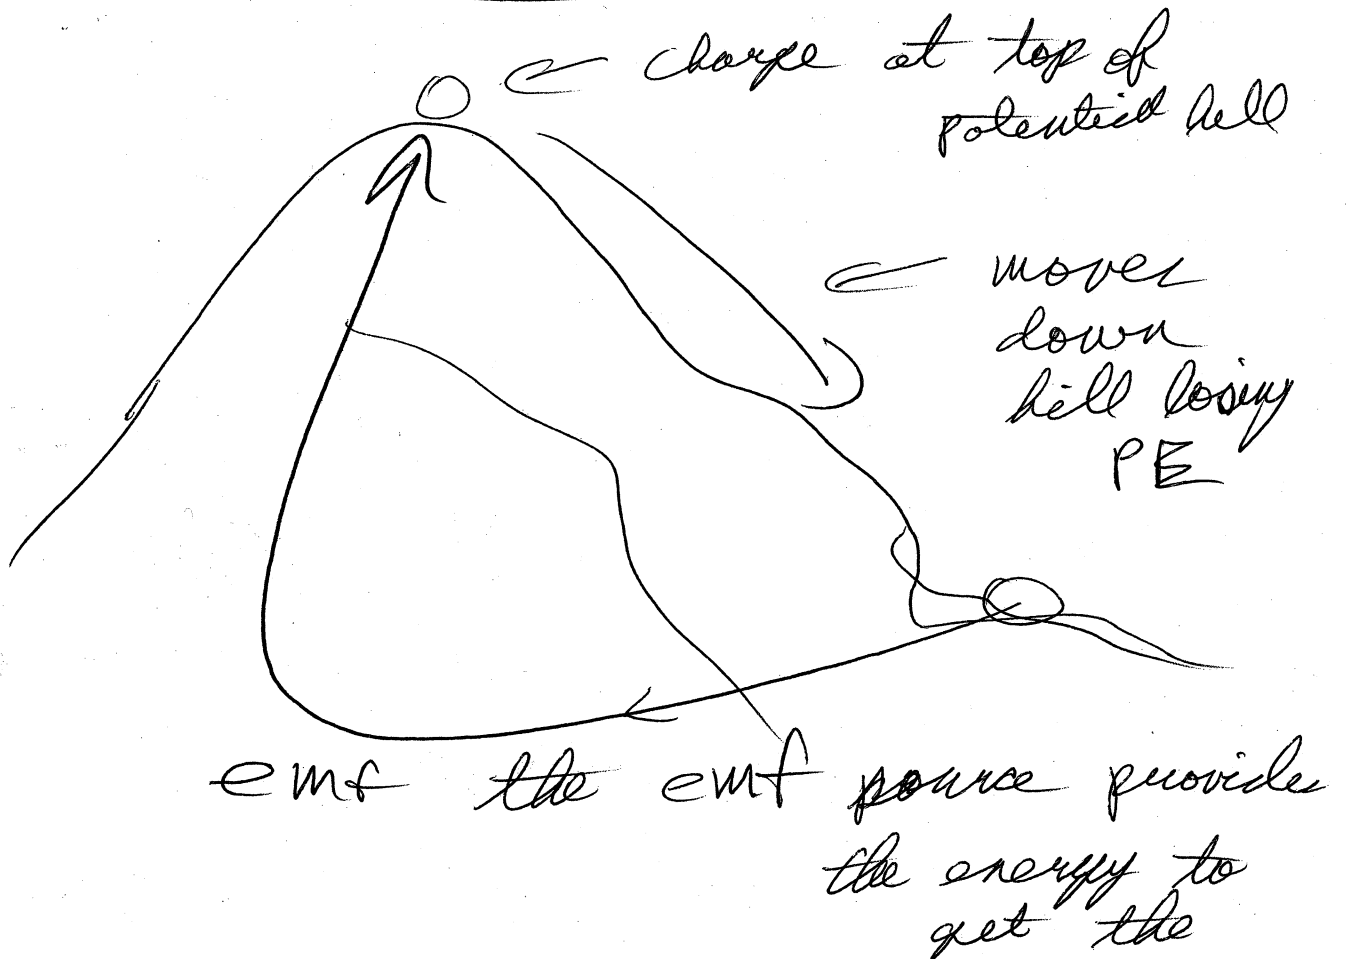 charge at top of
potential hill
moves
down
hill losing
PE
emf the emf source provides
the energy to
get the